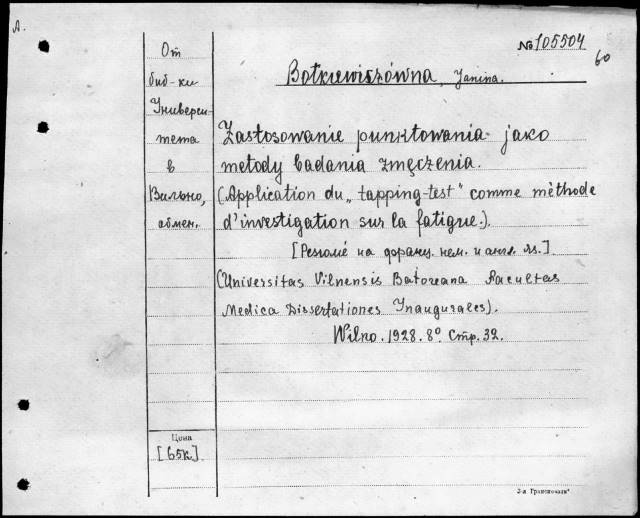 А.
№ 105504
60
От
биб-ки
Универси-
тета
в
Вильно,
обмен.
Bołkiewiszówna, Janina.
Zastosowanie punktowania jako
metody badania zmęczenia.
(Application du „tapping-test" comme mèthode
d'investigation sur la fatigue.).
[Резюмé на франц. нем. и англ. яз.]
(Universitas Vilnensis Batoreana Facultas
Medica Dissertationes Inaugurales).
Wilno. 1928. 8º. Стр. 32.
Цена
[65к]